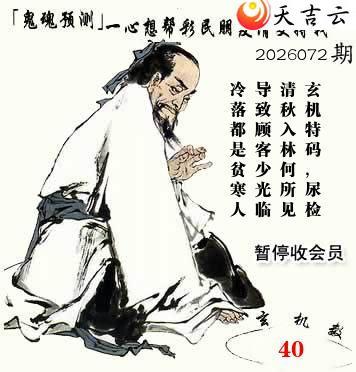 天吉云
「鬼魂预测」一心想帮彩民朋
2026072期
玄机特码，尿检
清秋入林何所见
导致顾客少光临
冷落都是贫寒人
暂停收会员
玄机
40